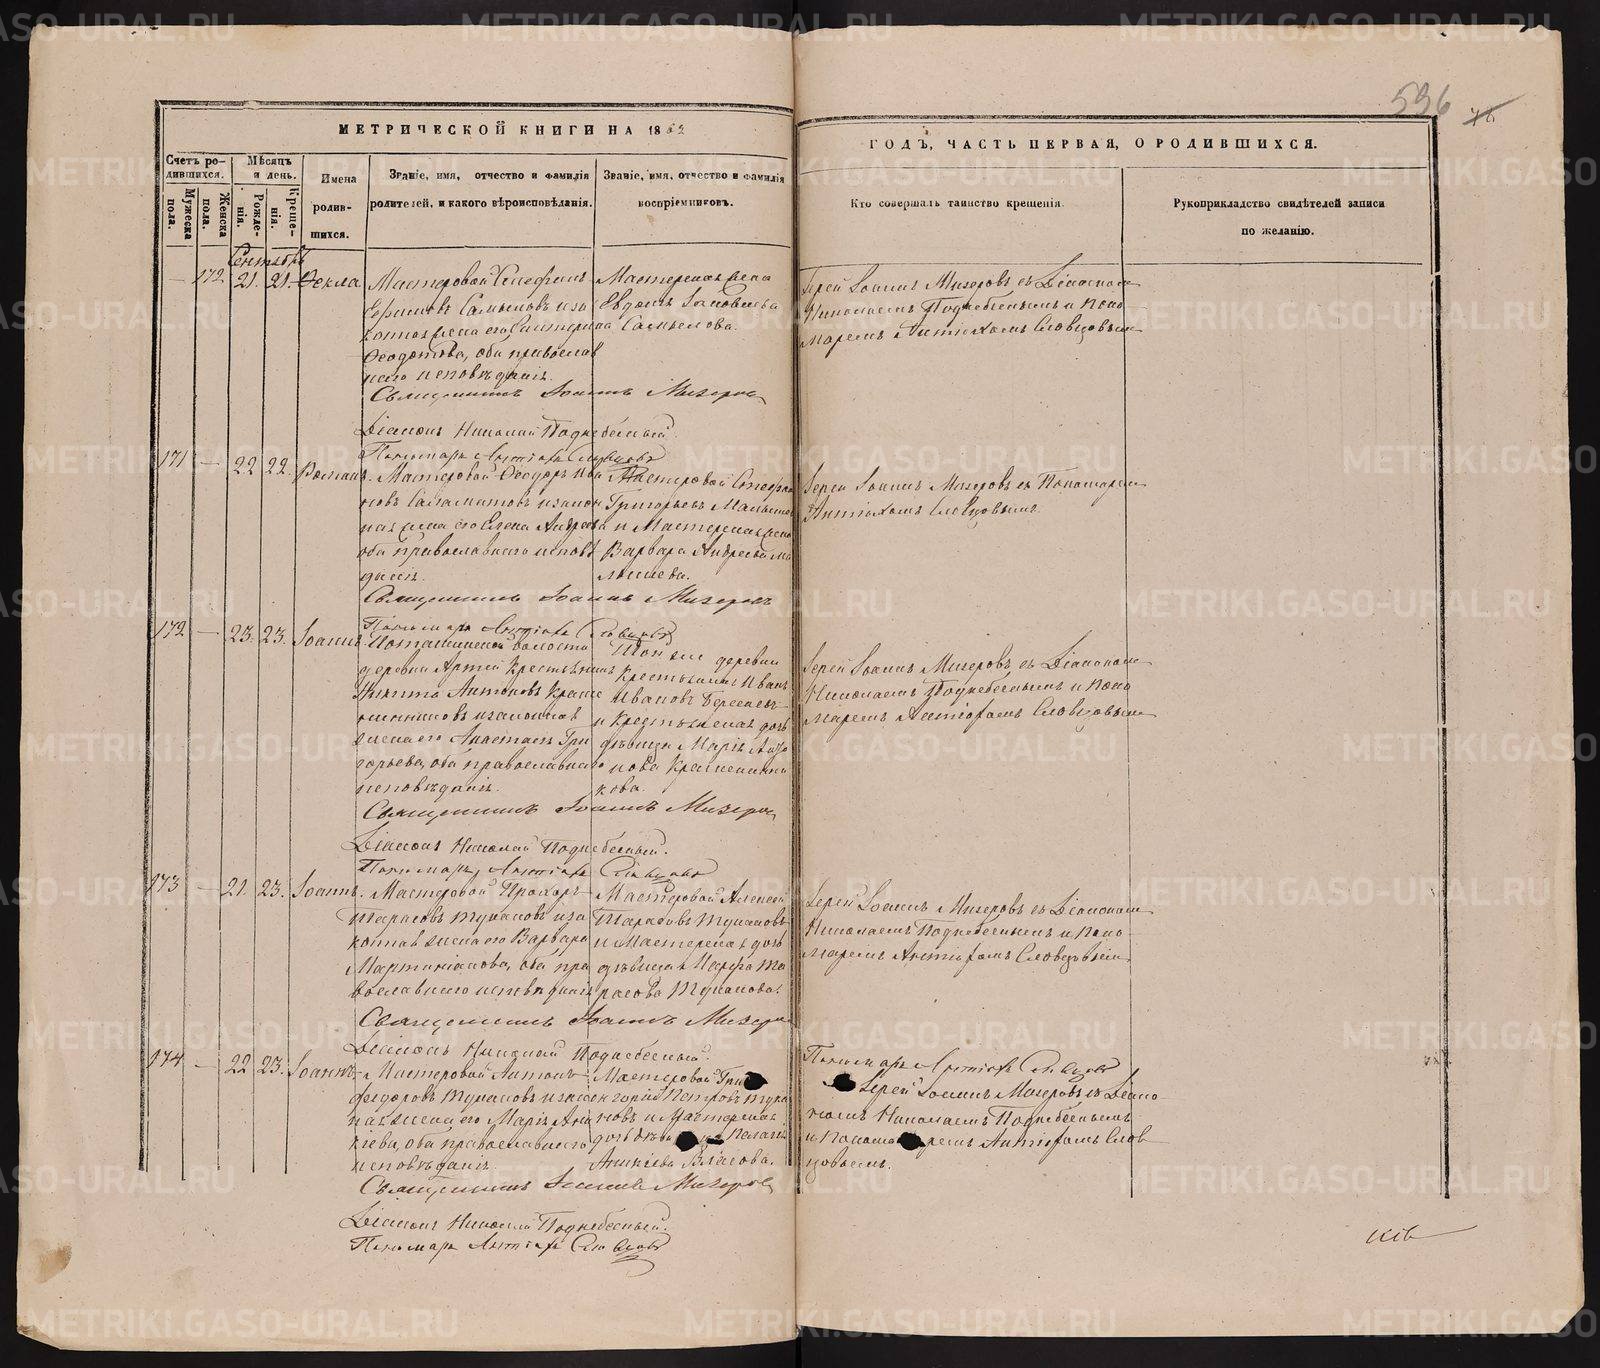 МЕТРИЧЕСКОЙ КНИГИ НА 1862
ГОДЪ, ЧАСТЬ ПЕРВАЯ, О РОДИВШИХСЯ.
596
Счетъ родившихся.
Мужеска пола.
Женска пола.
Мѣсяцъ и день.
Рожденія.
Крещенія.
Имена родившихся.
Званіе, имя, отчество и фамилія
родителей, и какого вѣроисповѣданія.
Званіе, имя, отчество и фамилія
воспріемниковъ.
Кто совершалъ таинство крещенія.
Рукоприкладство свидѣтелей записи
по желанію.
Сентябрь
172 21. 21. Ѳекла
Мастеровой Стефанъ
и законная жена его Екатерина
Ѳеодотова, оба православнаго исповѣданія.
Мастерская жена
Іерей Іоаннъ Мизеровъ съ Діакономъ
Николаемъ Поднебеснымъ и Пономаремъ Антіохомъ Словцовымъ
Священникъ Іоаннъ Мизеровъ
Діаконъ Николай Поднебесный.
Пономарь Антіохъ Словцовъ
171 — 22 22. Романъ.
Мастеровой Ѳеодоръ Ивановъ Саламатовъ и законная жена его Елена Андреева
оба православнаго исповѣданія.
Мастеровой Стефанъ
Григорьевъ Малышевъ
и Мастерская жена
Варвара Андреева Малышева.
Іерей Іоаннъ Мизеровъ съ Пономаремъ
Антіохомъ Словцовымъ.
Священникъ Іоаннъ Мизеровъ
Пономарь Антіохъ Словцовъ
172 — 23. 23. Іоаннъ
Поташинской волости
деревни Артей Крестьянинъ
Никита Антоновъ Крашенинниковъ и законная
жена его Анастасія Григорьева, оба православнаго
исповѣданія.
Той же деревни
Крестьянинъ Иванъ
Ивановъ
и Крестьянская дочь
дѣвица Марія
Крашенинникова.
Іерей Іоаннъ Мизеровъ съ Діакономъ
Николаемъ Поднебеснымъ и Пономаремъ Антіохомъ Словцовымъ
Священникъ Іоаннъ Мизеровъ
Діаконъ Николай Поднебесный.
Пономарь Антіохъ Словцовъ
173 — 21. 23. Іоаннъ.
Мастеровой Прохоръ
Тарасовъ Тукановъ и законная жена его Варвара
Мартиніанова, оба православнаго исповѣданія
Мастеровой Алексей
Тарасовъ Тукановъ
и Мастерская дочь
дѣвица Марфа Тарасова Туканова.
Іерей Іоаннъ Мизеровъ съ Діакономъ
Николаемъ Поднебеснымъ и Пономаремъ Антіохомъ Словцовымъ
Священникъ Іоаннъ Мизеровъ
Діаконъ Николай Поднебесный.
Пономарь Антіохъ Словцовъ
174 — 22 23. Іоаннъ.
Мастеровой Антонъ
Ѳедоровъ Тукановъ и законная жена его Марія
оба православнаго
исповѣданія.
Мастеровой Григорій Петровъ Тукановъ и Мастерская
дочь Пелагія
Аникіева Власова.
Іерей Іоаннъ Мизеровъ съ Діакономъ Николаемъ Поднебеснымъ
и Пономаремъ Антіохомъ Словцовымъ.
Священникъ Іоаннъ Мизеровъ
Діаконъ Николай Поднебесный.
Пономарь Антіохъ Словцовъ
METRIKI.GASO-URAL.RU